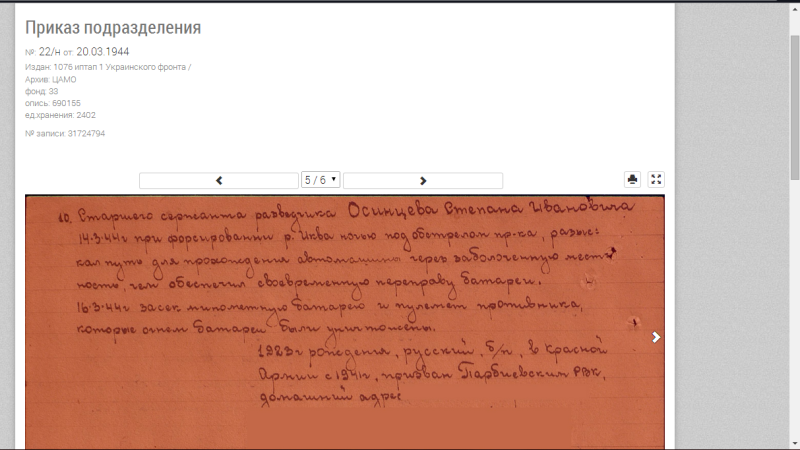 Приказ подразделения
№: 22/н от: 20.03.1944
Издан: 1076 иптап 1 Украинского фронта /
Архив: ЦАМО
фонд: 33
опись: 690155
ед.хранения: 2402
№ записи: 31724794
5 / 6
10. Старшего сержанта разведчика Осинцева Степана Ивановича
14.3.44г при форсировании р. Иква ночью под обстрелом пр-ка, разыс:
кал путь для прохождения автомашины через заболоченную мест
ность, чем обеспечил своевременную переправу батареи.
16.3.44г засек минометную батарею и пулемет противника,
которые огнем батареи были уничтожены.
1923г рождения, русский, б/п, в Красной
Армии с 1941г, призван Парбигским РВК,
домашний адрес